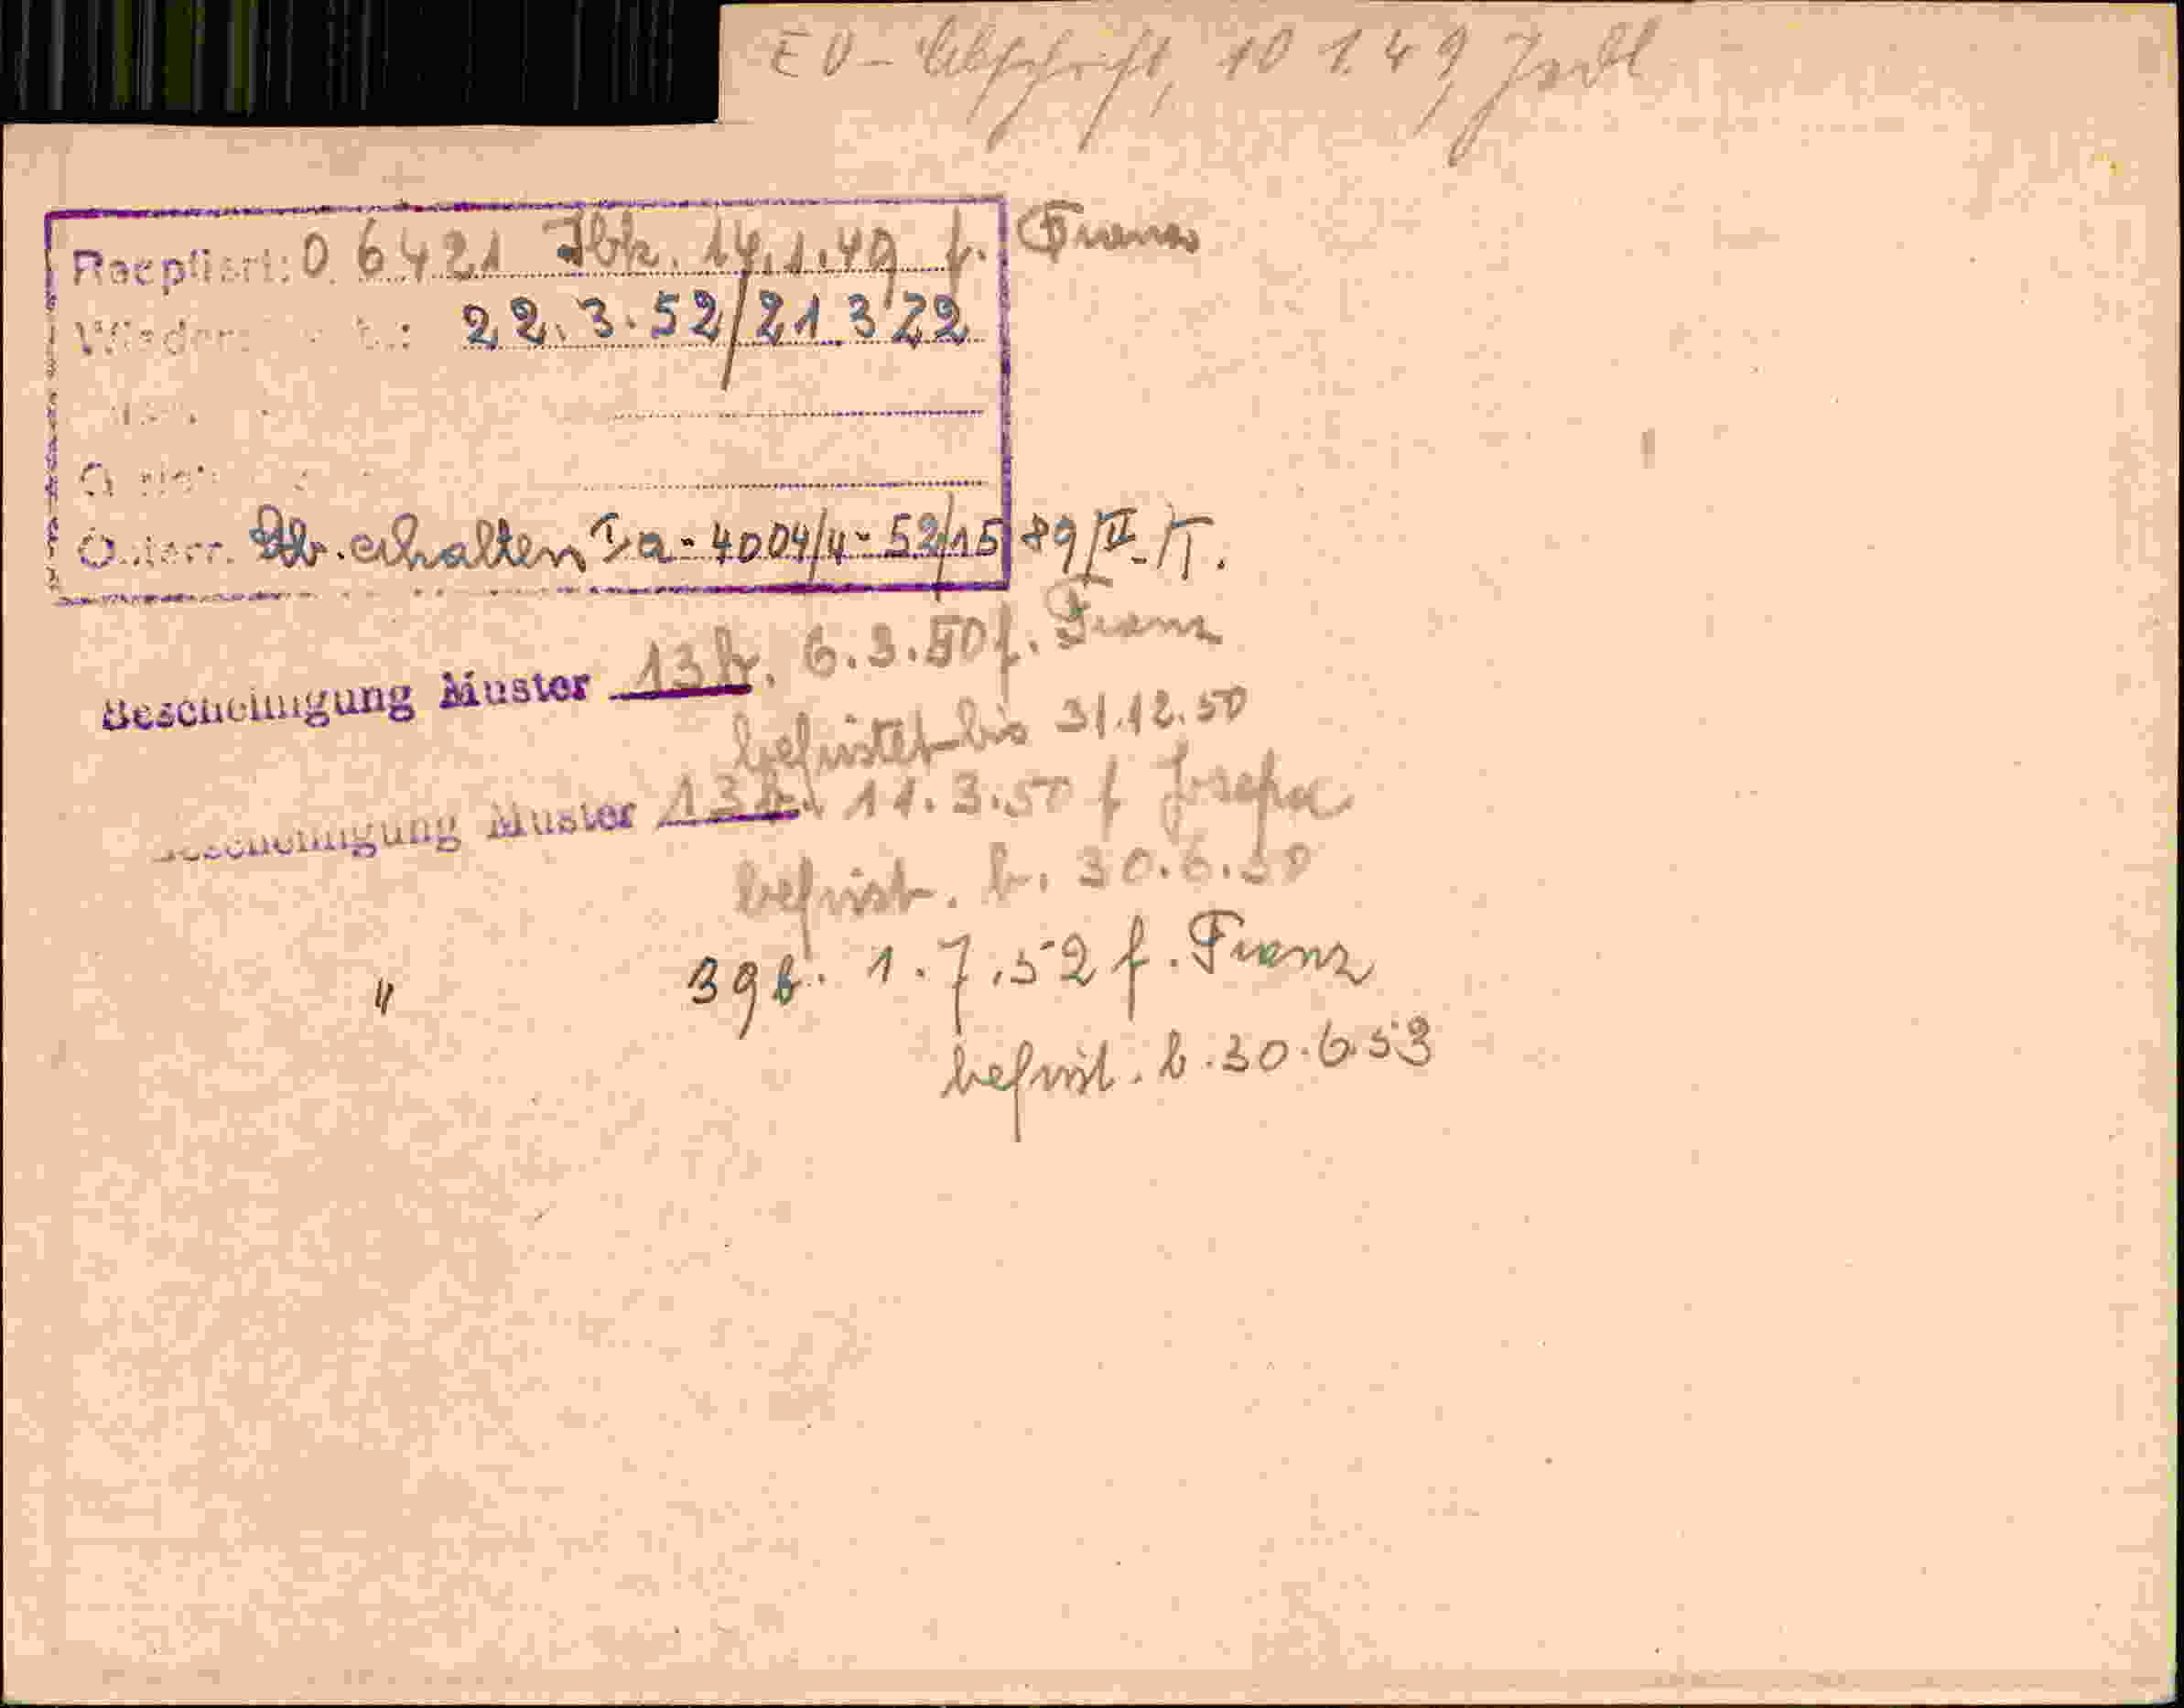 EV-Abschrift, 10 1.49
Recptiert: 0. 6421 Ibk. 14.1.49 f. Franz
22.3.52/21322
Österr. Stb. erhalten Ia-4004/4-52/1589/II-/T.
Bescheinigung Muster 13 b. 6.3.50 f. Franz
befristet bis 31.12.50
Bescheinigung Muster 13 11.3.50 f Josefa
befrist. b. 30.6.50
" 39b. 1.7.52 f. Franz
befrist. b. 30.6.53